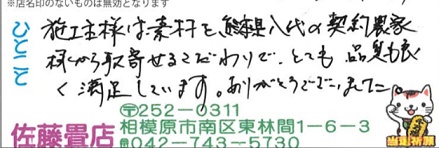 ※店名印のないものは無効となります
ひとこと
施工主様は素材を熊本県八代の契約農家
様から取寄せるこだわりで、とても品質も良
く満足しています。ありがとうございました。
〒252-0311
佐藤畳店 相模原市南区東林間1-6-3
☎042-743-5730